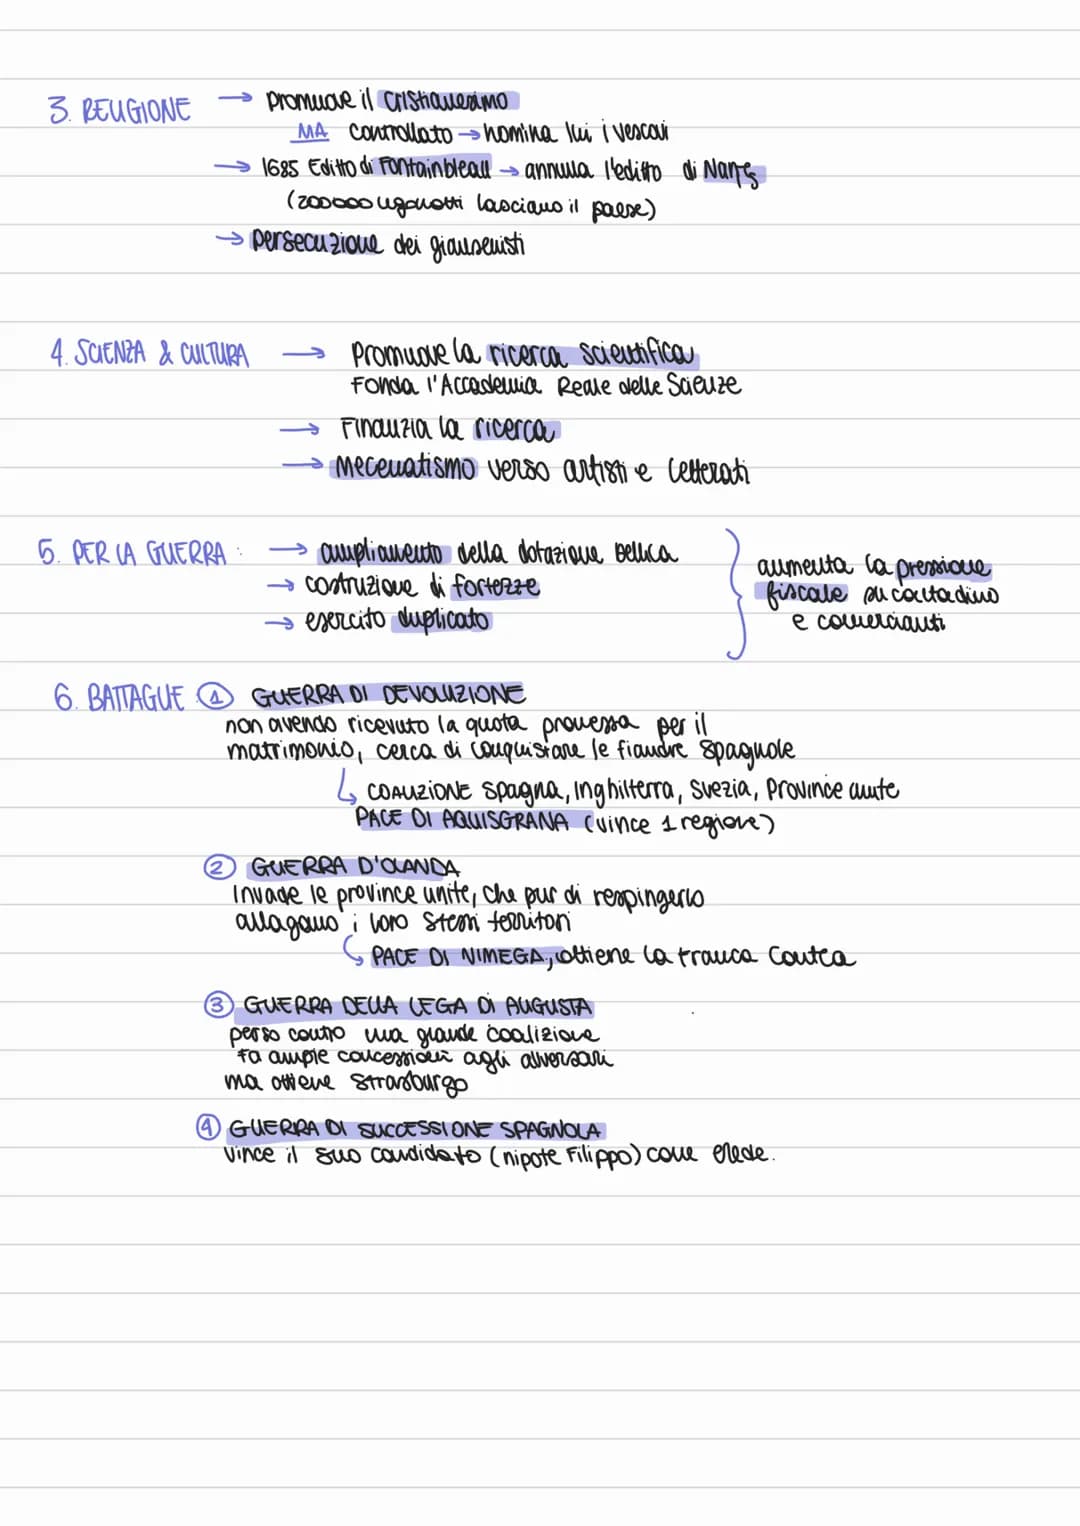 3. RELIGIONE → promuove il cristianesimo
MA controllato → nomina lui i vescovi
→ 1685 Editto di Fontainbleau → annulla l'editto di Nantes
(200000 ugonotti lasciano il paese)
→ persecuzione dei giansenisti
4. SCIENZA & CULTURA → Promuove la ricerca scientifica
Fonda l'Accademia Reale delle Scienze
→ Finanzia la ricerca
→ mecenatismo verso artisti e letterati
5. PER LA GUERRA: → ampliamento della dotazione bellica
→ costruzione di fortezze
→ esercito duplicato
aumenta la pressione
fiscale su contadino
e commercianti
6. BATTAGLIE ① GUERRA DI DEVOLUZIONE
non avendo ricevuto la quota promessa per il
matrimonio, cerca di conquistare le fiandre spagnole
↳ COALIZIONE Spagna, Inghilterra, Svezia, Province unite
PACE DI AQUISGRANA (vince 1 regione)
② GUERRA D'OLANDA
Invade le province unite, che pur di respingerlo
allagano i loro stessi territori
↳ PACE DI NIMEGA, ottiene la Franca Contea
③ GUERRA DELLA LEGA DI AUGUSTA
perso contro una grande coalizione
fa ampie concessioni agli avversari
ma ottiene Strasburgo
④ GUERRA DI SUCCESSIONE SPAGNOLA
vince il suo candidato (nipote Filippo) come erede.